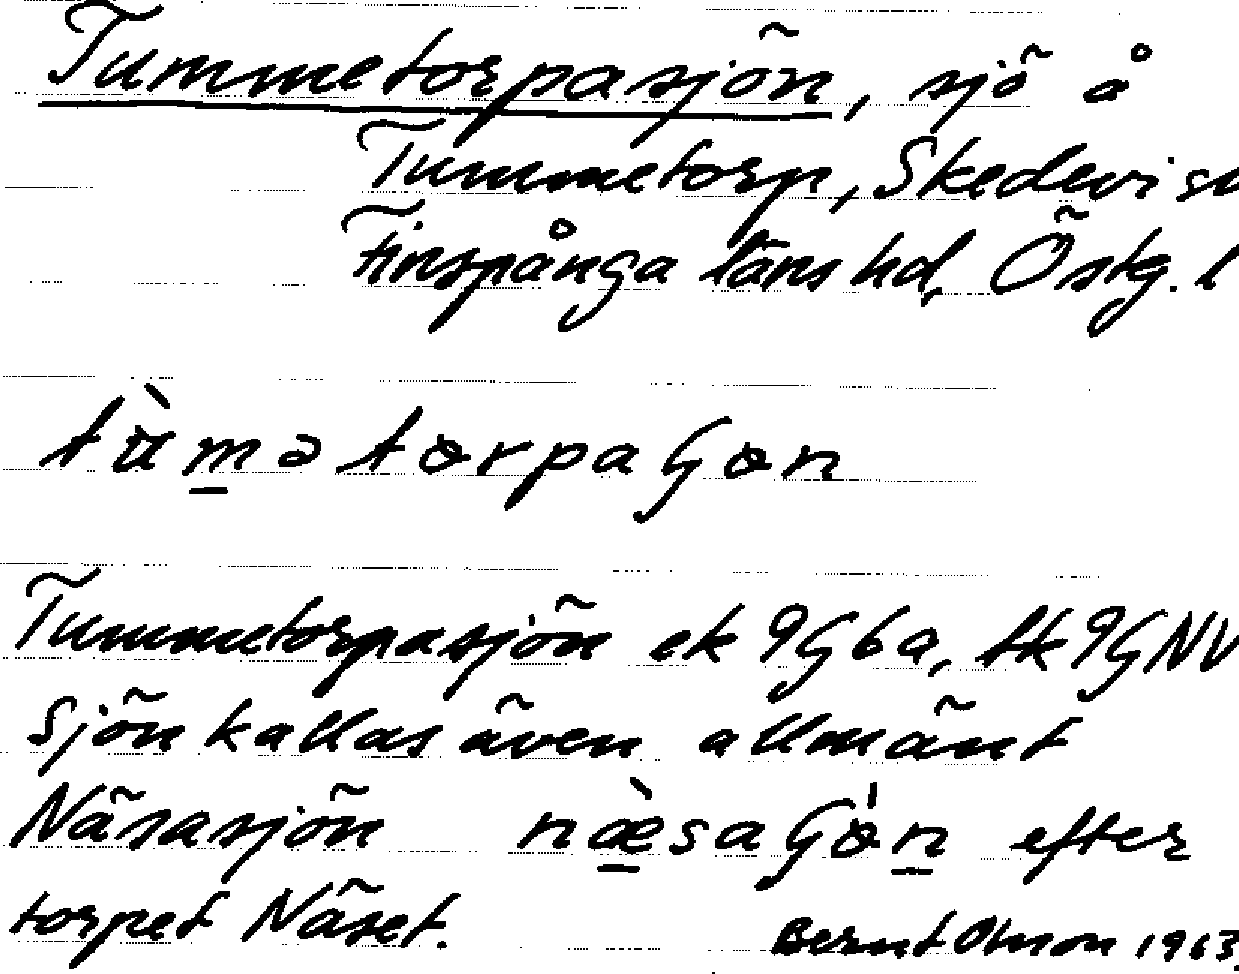 Tummetorpasjön, sjö å
Tummetorp, Skedevi sn
Finspånga läns hd, Östg. l
Tummetorpasjön ek 9G6a, tk 9GNV
Sjön kallas även allmänt
Näsasjön næsaʃɵn efter
torpet Näset. Bernt Olsson 1963.